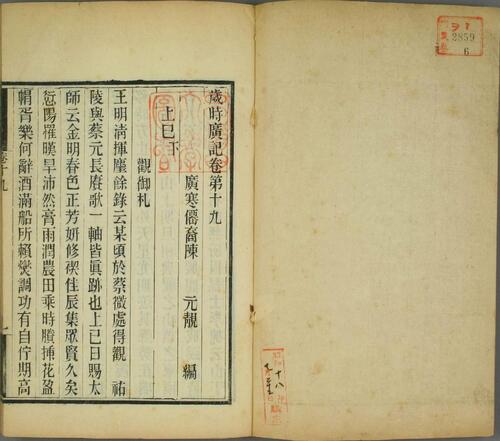 歲時廣記卷第十九
廣寒僊裔陳 元靚 編
上巳下
觀御札
王明清揮麈餘錄云某頃於蔡微處得觀 祐
陵與蔡元長賡歌一軸皆眞跡也上巳日賜太
師云金明春色正芳妍修禊佳辰集眾賢久矣
愆陽罹暵旱沛然膏雨潤農田乘時賸揷花盈
帽胥樂何辭酒滿船所賴燮調功有自佇期高
2859
6